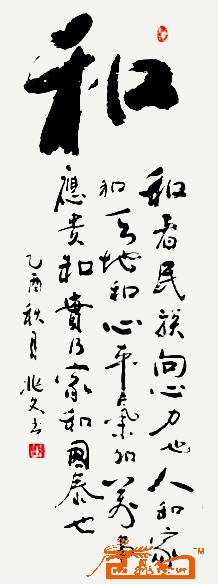 和
和者民族向心力也人和家
和天地和心平气和万事
应贵和贵乃家和国泰也
乙酉秋月 兆文书